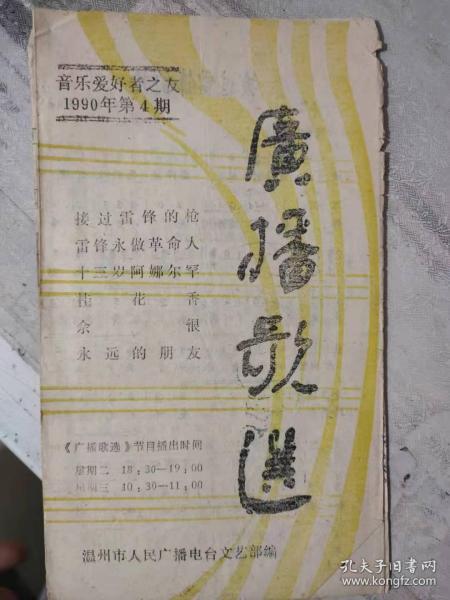 音乐爱好者之友
1990年第4期
廣播歌选
接过雷锋的枪
雷锋永做革命人
十三岁阿娜尔罕
桂花香
余恨
永远的朋友
《广播歌选》节目播出时间
星期二 18:30—19:00
星期三 10:30—11:00
温州市人民广播电台文艺部编
孔夫子旧书网